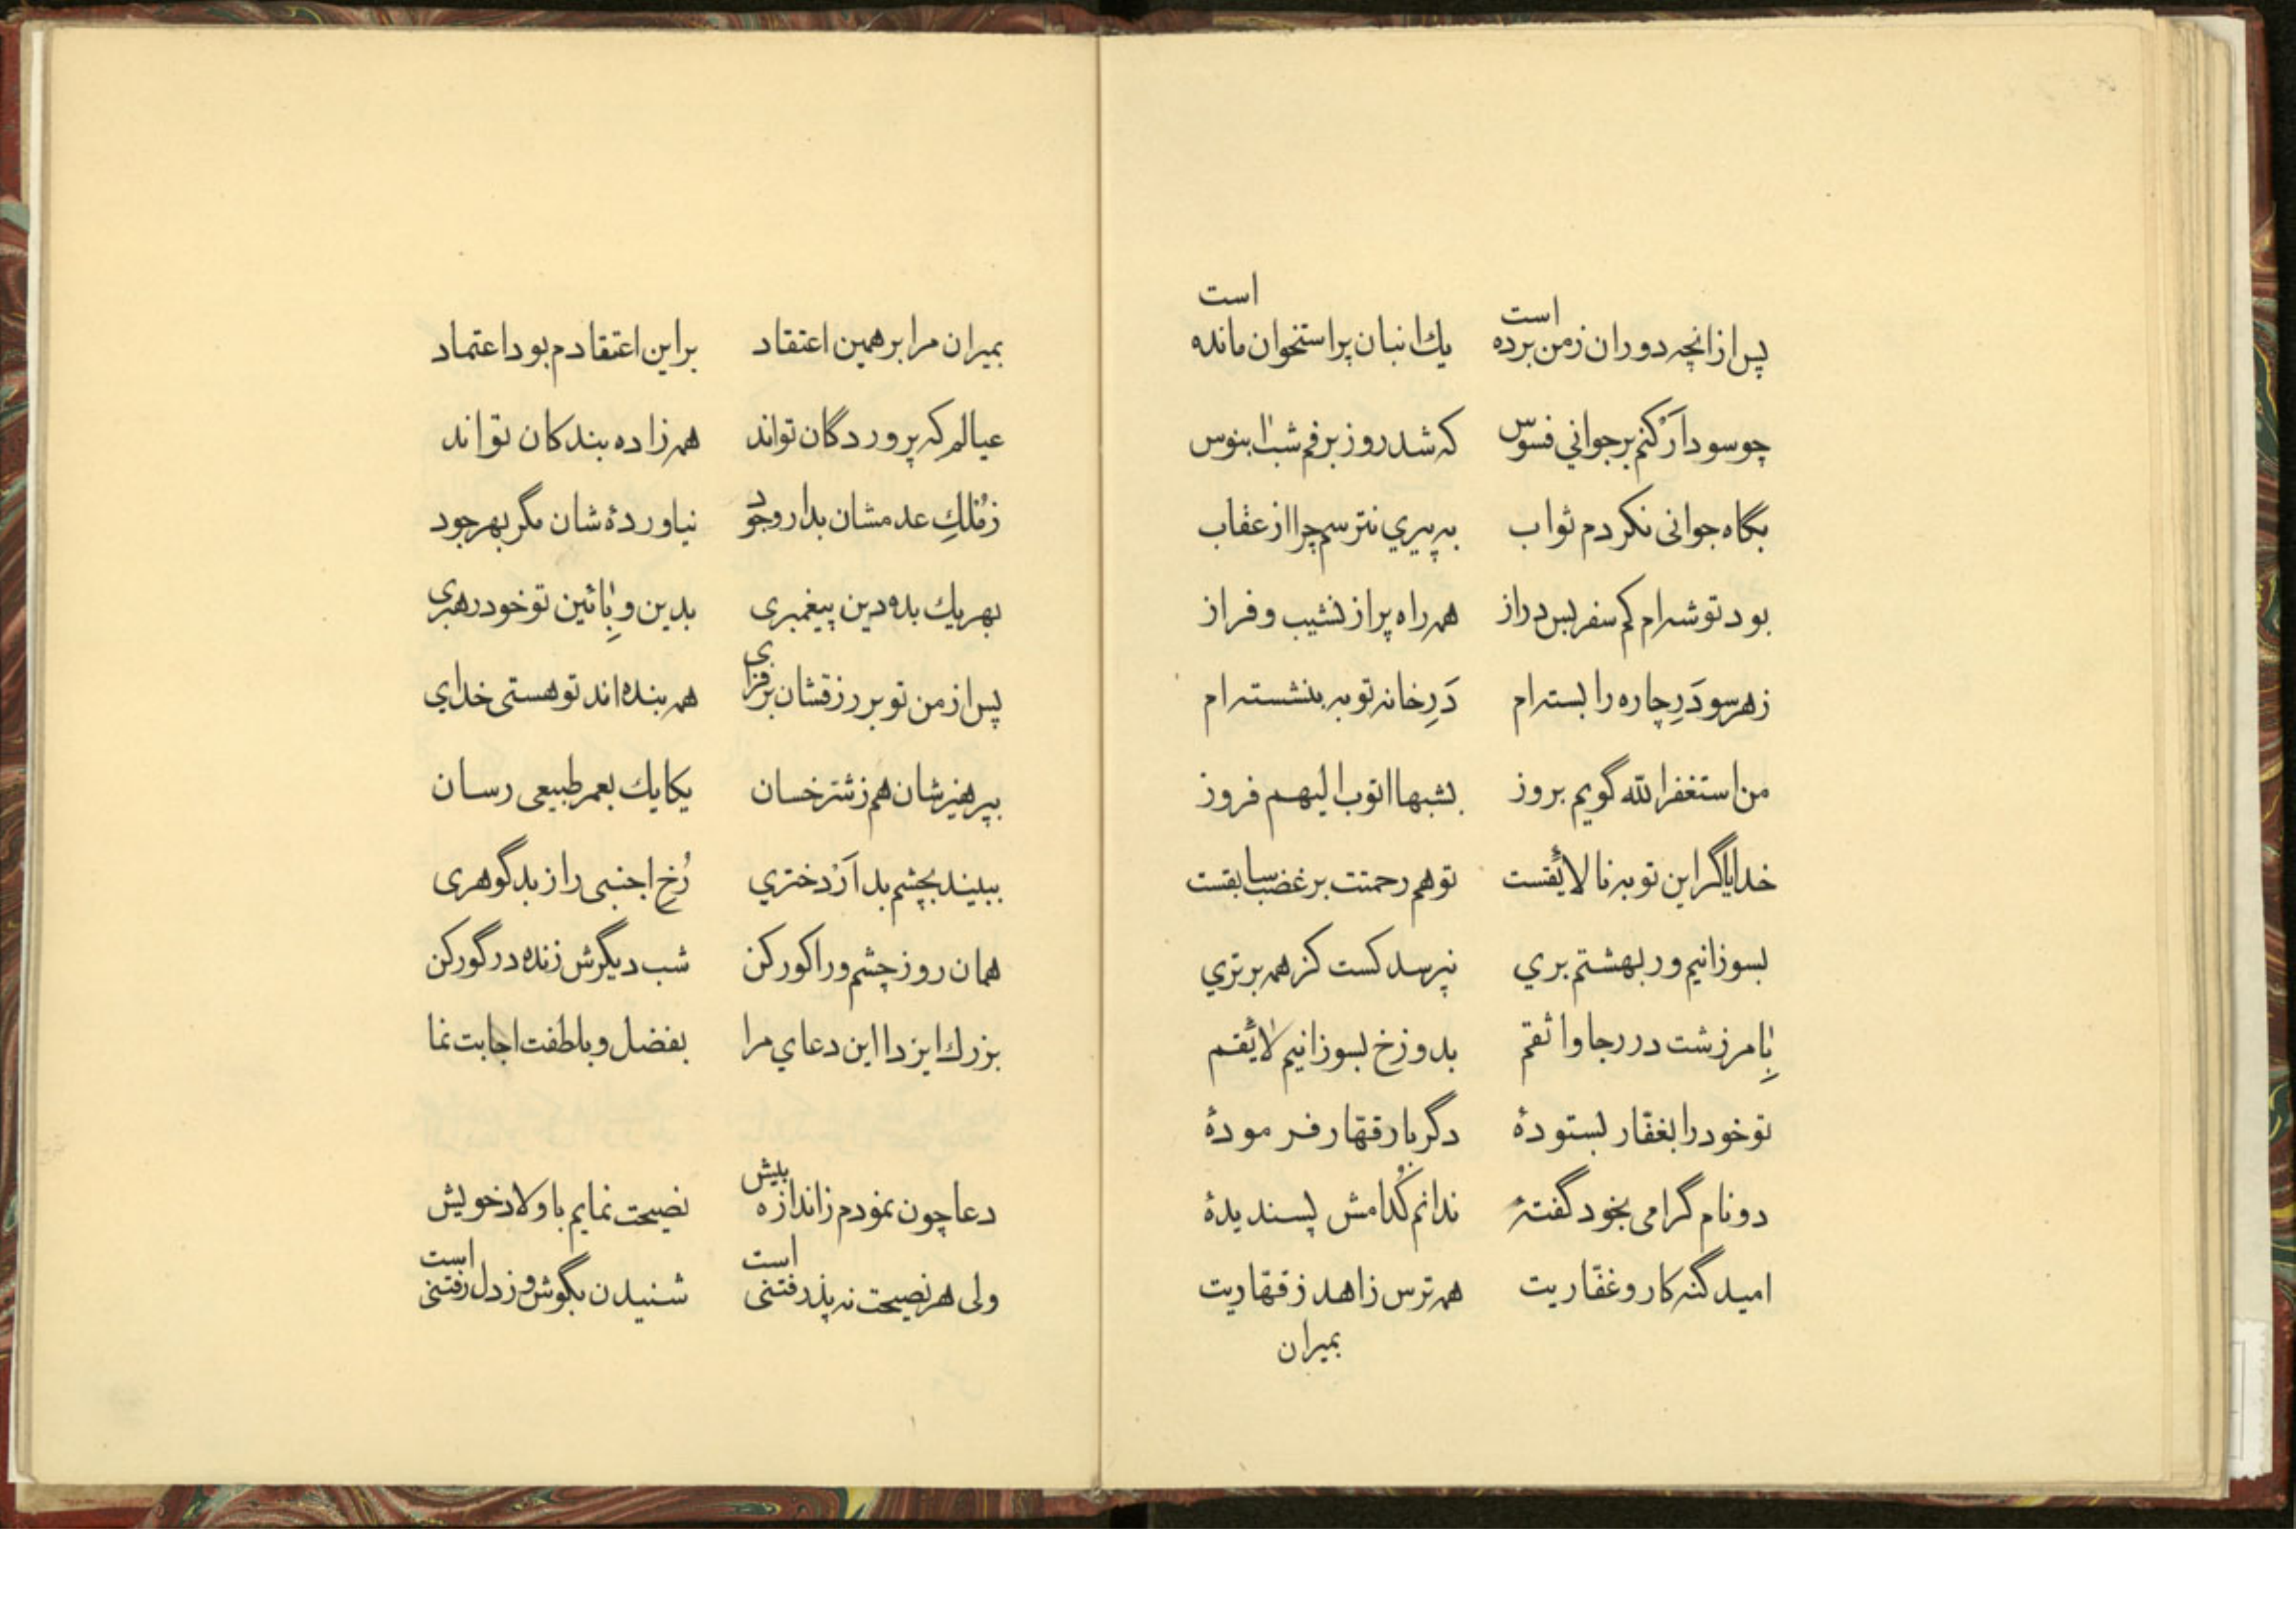 پس از انچه دوران ز من برده است یك انبان پر استخوان مانده است
چو سود ار کنم بر جوانی فسوس که شد روز برفم شب ابنوس
بگاه جوانی نکردم ثواب به پیری نترسم چرا از عقاب
بود توشه‌ام کم سفر بس دراز همه راه پر از نشیب و فراز
ز هر سو دَرِ چاره را بسته‌ام دَرِ خانه توبه بنشسته‌ام
من استغفر الله گویم بروز بشبها اتوب الیهم فروز
خدایا گر این توبه نالایقست تو هم رحمتت بر غضب سابقست
بسوزانیم ور بهشتم بری نپرسد کست کز همه برتری
بِامرزشت در رجا واثقم بدوزخ بسوزانیم لایقم
تو خود را بغفّار بستودهٔ دگر بار قهّار فرمودهٔ
دو نام گرامی بخود گفتهٔ ندانم کُدامش پسندیدهٔ
امید گنه‌کار و غفّاریت همه ترس زاهد ز قهّاریت
بمیران
بمیران مرا بر همین اعتقاد بر این اعتقادم بود اعتماد
عیالم که پروردگان تواند همه زاده بندکان تواند
ز مُلكِ عدمشان بدار وجود نیاوردهٔ شان مگر بهر جود
بهر یك بده دین پیغمبری بدین و بِائین تو خود رهبری
پس از من تو بر رزقشان برفزای همه بنده‌اند تو هستی خدای
بپرهیزشان هم ز شتر خسان یکایك بعمر طبیعی رسان
ببیند بچشم بد ار دختری رُخِ اجنبی را ز بد گوهری
همان روز چشم ورا کور کن شب دیگرش زنده در گور کن
بزرك ایزدا این دعای مرا بفضل و بلطفت اجابت نما
دعا چون نمودم ز اندازه بیش نصیحت نمایم باولاد خویش
ولی هر نصیحت نه پذرفتنی است شنیدن بگوش و ز دل رفتنی است